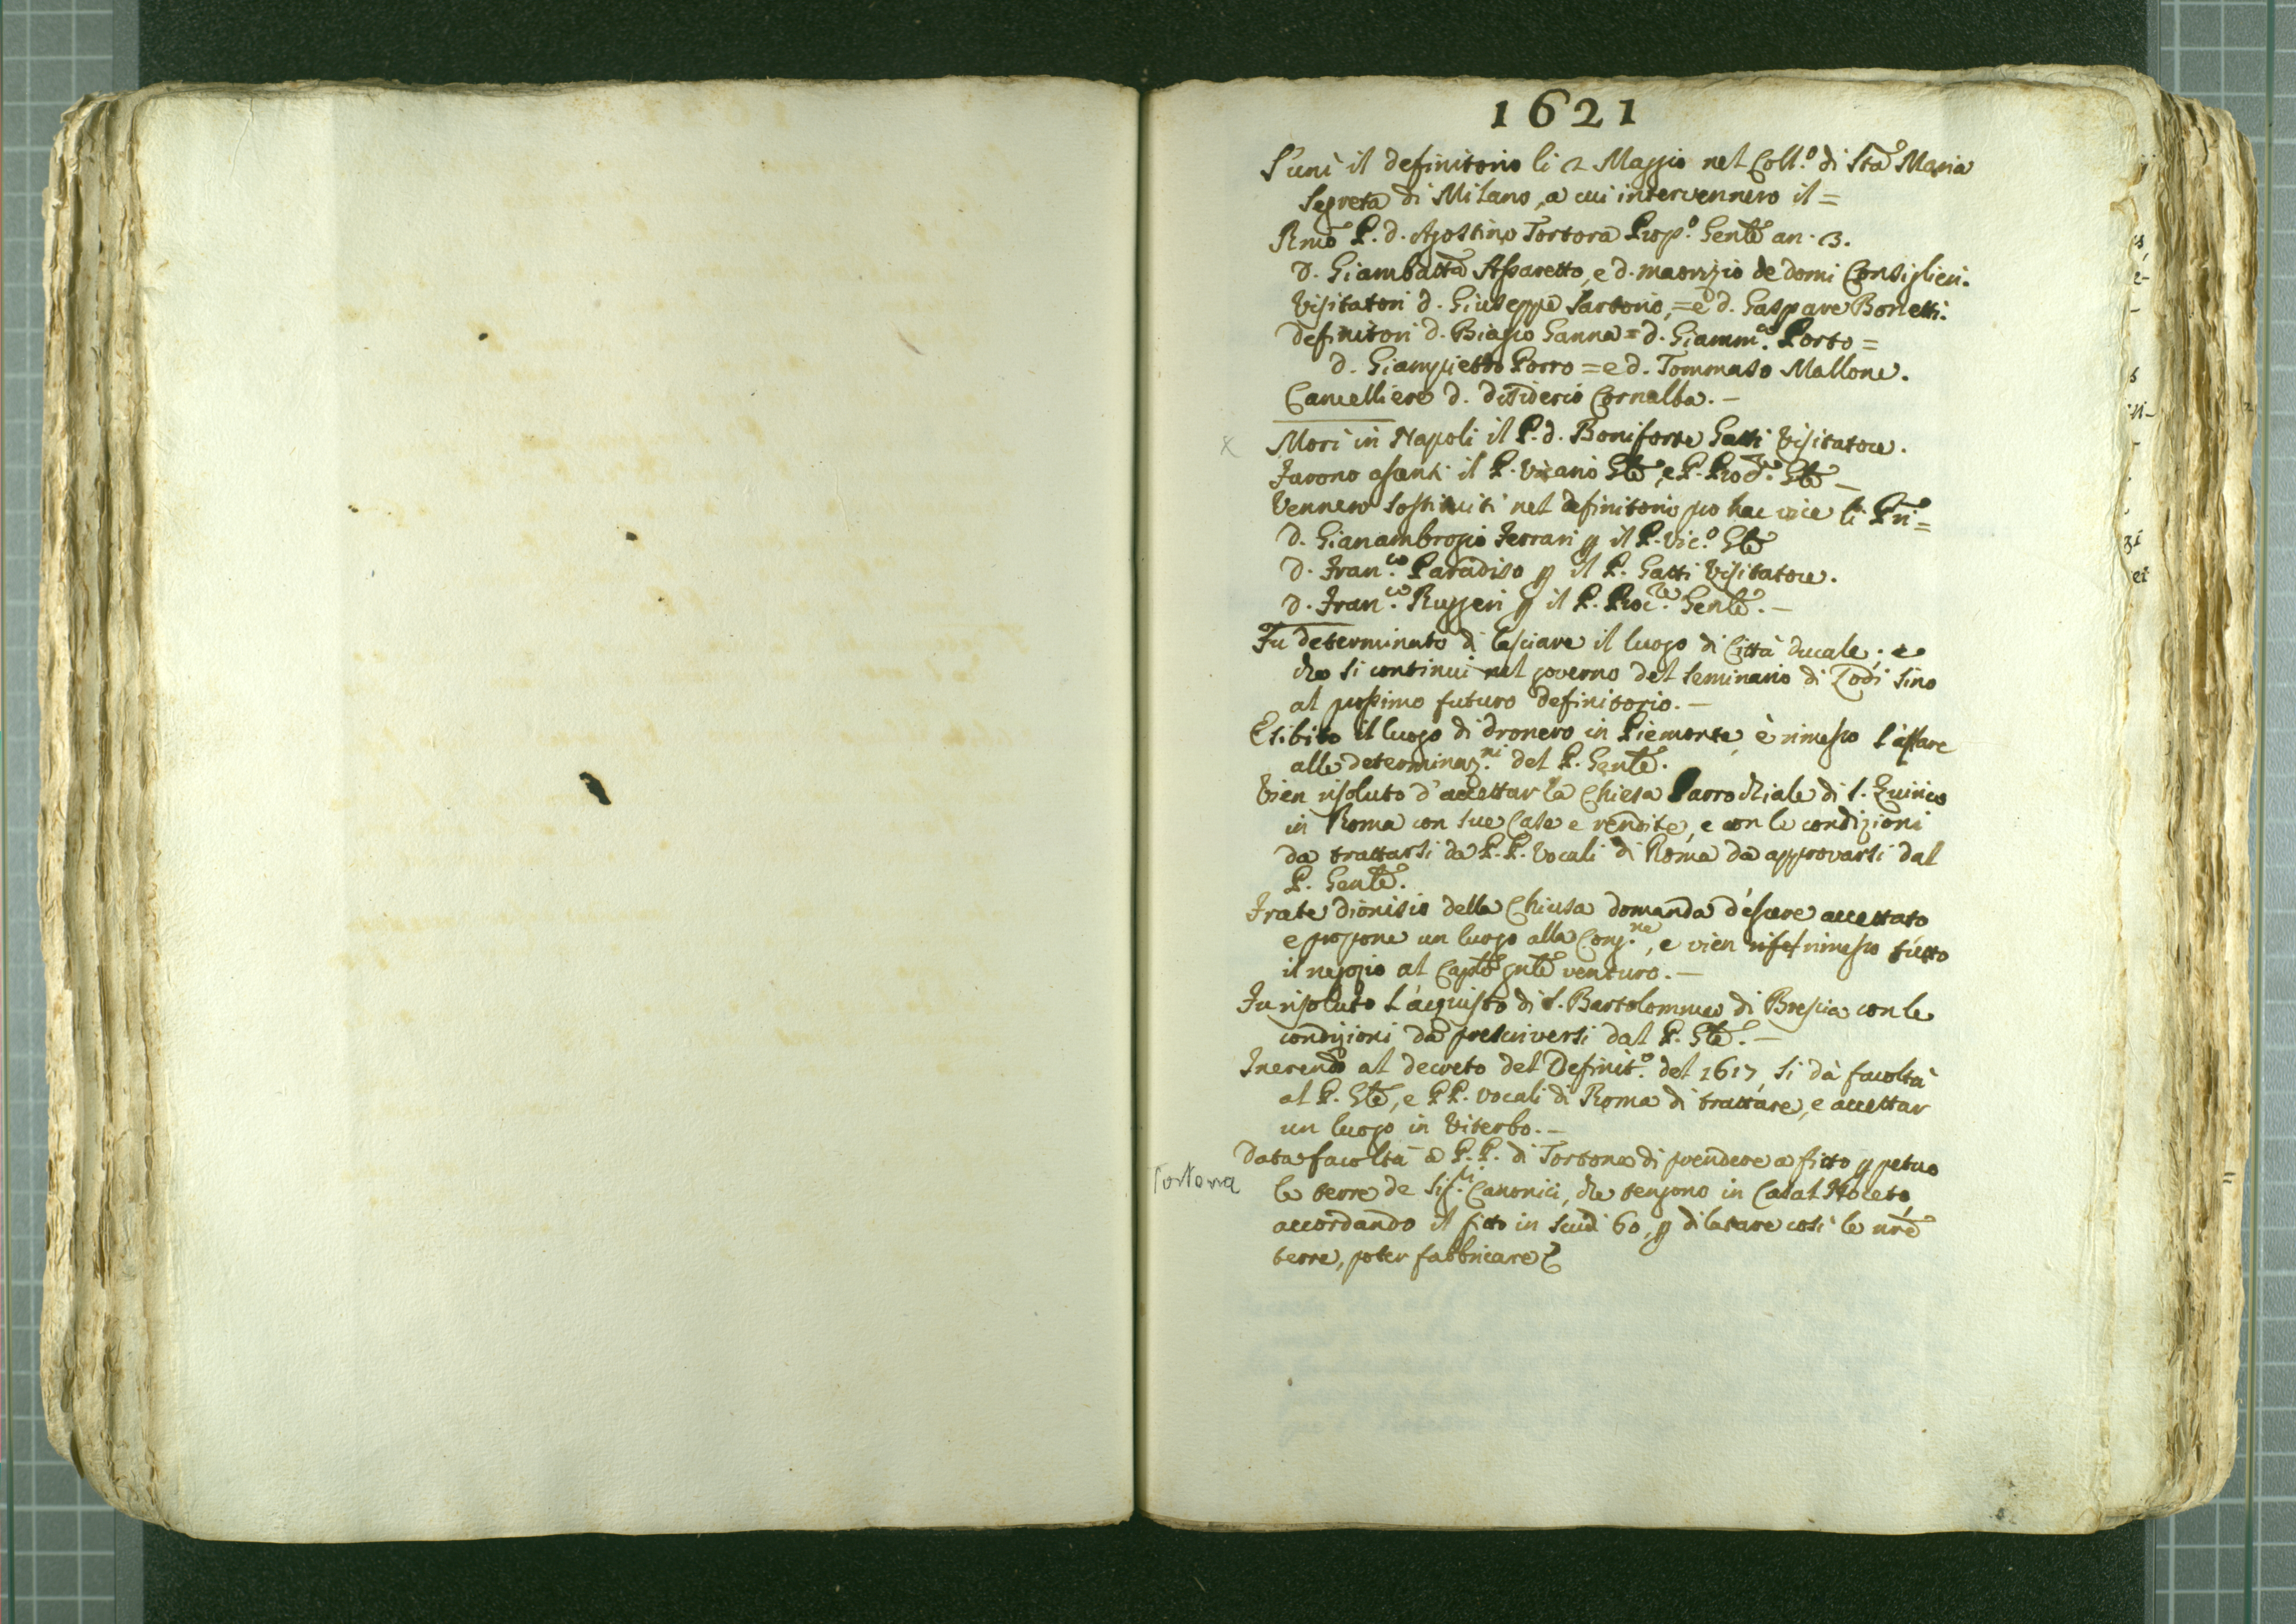 1621
S'unì il definitorio li 2 Maggio nel Coll.º di Sta Maria
Segreta di Milano, a cui intervennero il =
Rmo P. d. Agostino Tortora Prop.º Genle an. 3.
D. Giambatta Assaretto, e d. Maurizio de Domi Consiglieri.
Visitatori d. Giuseppe Sartorio, = e d. Gaspare Bonetti.
Definitori d. Biagio Ganna = d. Giamm.ª Porto =
d. Giampietro Porro = e d. Tommaso Mallone.
Cancelliere d. Disiderio Cornalba. –
x Morì in Napoli il P. d. Boniforte Gatti Visitatore.
Furono assenti il P. Vicario Gle, e P. Procre. Gle –
Vennero sostituiti nel definitorio pro hac vice li Pri =
D. Gianambrogio Ferrari p il P. Vic.º Gle
D. Fran.co Paradiso p il P. Gatti Visitatore.
D. Fran.co Ruggeri p il P. Procre. Genle. –
Fu determinato di lasciare il luogo di Città ducale; e
che si continui nel governo del seminario di Lodi sino
al prossimo futuro definitorio. –
Esibito il luogo di dronero in Piemonte, è rimesso l'affare
alle determinaz.ni del P. Genle.
Vien risoluto d'accettar la Chiesa Parrochiale di S. Quirico
in Roma con sue Case e rendite, e con le condizioni
da trattarsi da P.P. Vocali di Roma da approvarsi dal
P. Genle.
Frate Dionisio della Chiusa domanda d'essere accettato
e propone un luogo alla Cong.ne, e vien rimesso tutto
il negozio al Caplo gnle venturo. –
Fu risoluto l'acquisto di S. Bartolommeo di Brescia con le
condizioni da prescriversi dal P. Gle. –
Inerendo al decreto del Definit.º del 1617, si dà facoltà
al P. Gle, e PP. Vocali di Roma di trattare, e accettar
un luogo in Viterbo. –
Data facoltà a P.P. di Tortona di prendere a fitto ppetuo
Tortona
le terre de Sig.ri Canonici, che tengono in Casal Noceto,
accordando il fitto in scudi 60, p dilatare così le nre
terre, poter fabbricare